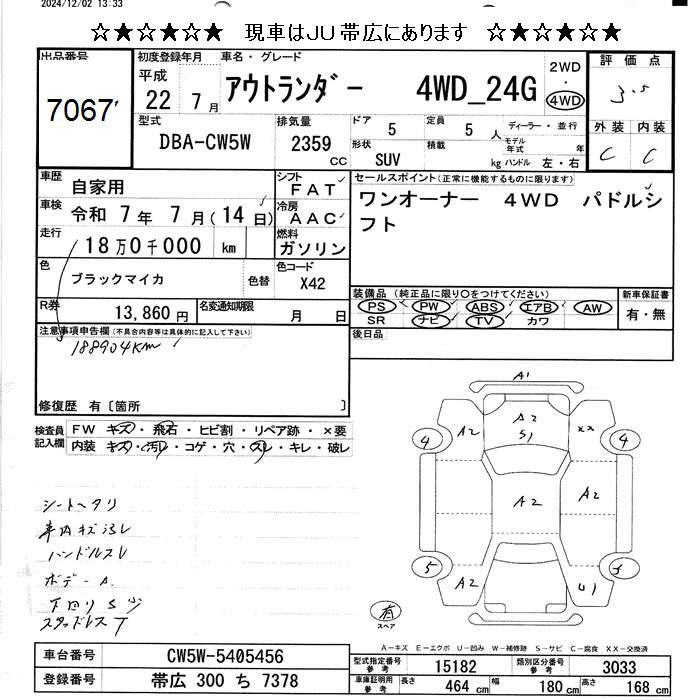 2024/12/02 13:33
☆★☆★☆★ 現車はJU帯広にあります ☆★☆★☆★
出品番号
7067
初度登録年月
平成
22 7月
車名・グレード
アウトランダー 4WD_24G
2WD
・
4WD
評価点
3.5
外装 内装
C C
型式
DBA-CW5W
排気量
2359
cc
ドア
5
定員
5 人
形状
SUV
積載
kg
ディーラー・並行
モデル年式 年
ハンドル 左・右
車歴
自家用
シフト
FAT
車検
令和 7年 7月(14日)
冷房
AAC
走行
18万0千000 km
燃料
ガソリン
色
ブラックマイカ
色替
色コード
X42
R券
13,860円
名変通知期限
月 日
セールスポイント(正常に機能するものに限ります)
ワンオーナー 4WD パドルシ
フト
装備品(純正品に限り○をつけてください)
PS PW ABS エアB AW
SR ナビ TV カワ
新車保証書
有・無
後日品
注意事項申告欄(不具合内容等は具体的に記入して下さい)
188904km
修復歴 有〔箇所 〕
検査員
記入欄
FW キズ・飛石・ヒビ割・リペア跡・×要
内装 キズ・汚レ・コゲ・穴・スレ・キレ・破レ
シートヘタリ
車内キズ汚レ
ハンドルスレ
ボデーA
下回りS少
スタッドレスT
A1
A2
S1
A2
XX
4
4
A2
A2
5
5
A2
U1
有
スペア
A-キズ E-エクボ U-凹み W-補修跡 S-サビ C-腐食 XX-交換済
車台番号 CW5W-5405456
登録番号 帯広 300 ち 7378
型式指定番号
参考
15182
類別区分番号
参考
3033
車庫証明用
参考
長さ 464 cm 幅 180 cm 高さ 168 cm